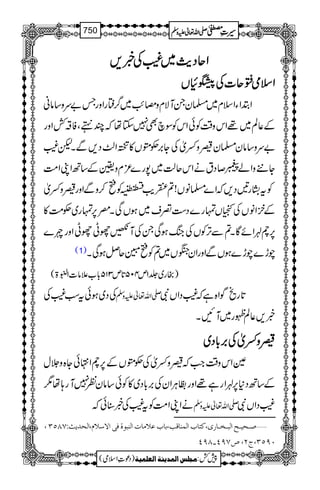 سیرتِ مصطفیٰ صلی اللہ تعالیٰ علیہ وسلم
750
احادیث میں غیب کی خبریں
اسلامی فتوحات کی پیشگوئیاں
ابتداء اسلام میں مسلمان جن آلام و مصائب میں گرفتار اور جس بے سروسامانی
کے عالم میں تھے اس وقت کوئی اس کو سوچ بھی نہیں سکتا تھا کہ چند نہتے، فاقہ کش اور
بے سروسامان مسلمان قیصر و کسریٰ کی جابر حکومتوں کا تختہ الٹ دیں گے۔ لیکن غیب
جاننے والے پیغمبر صادق نے اس حالت میں پورے عزم و یقین کے ساتھ اپنی امت
کو یہ بشارتیں دیں کہ اے مسلمانوں! تم عنقریب قسطنطنیہ کو فتح کرو گے اور قیصر و کسریٰ
کے خزانوں کی کنجیاں تمہارے دست تصرف میں ہوں گی۔ مصر پر تمہاری حکومت کا
پرچم لہرائے گا۔ تم سے ترکوں کی جنگ ہو گی جن کی آنکھیں چھوٹی چھوٹی اور چہرے
چوڑے چوڑے ہوں گے اور ان جنگوں میں تم کو فتح مبین حاصل ہو گی۔ (۱)
(بخاری جلد۱ص۵۰۴ تا ص۵۱۳ باب علامات النبوۃ)
تاریخ گواہ ہے کہ غیب داں نبی صلی اللہ تعالیٰ علیہ وسلم کی دی ہوئی یہ سب غیب کی
خبریں عالم ظہور میں آئیں۔
قیصر و کسریٰ کی بربادی
عین اس وقت جب کہ قیصر و کسریٰ کی حکومتوں کے پرچم انتہائی جاہ و جلال
کے ساتھ دنیا پر لہرا رہے تھے اور بظاہر ان کی بربادی کا کوئی سامان نظر نہیں آ رہا تھا مگر
غیب داں نبی صلی اللہ تعالیٰ علیہ وسلم نے اپنی امت کو یہ غیب کی خبر سنائی کہ
صحیح البخاری، کتاب المناقب، باب علامات النبوۃ فی الاسلام، الحدیث: ۳۵۸۷،
۳۵۹۰، ج۲، ص۴۹۷-۴۹۸
پیش کش: مجلس المدینة العلمیة (دعوتِ اسلامی)